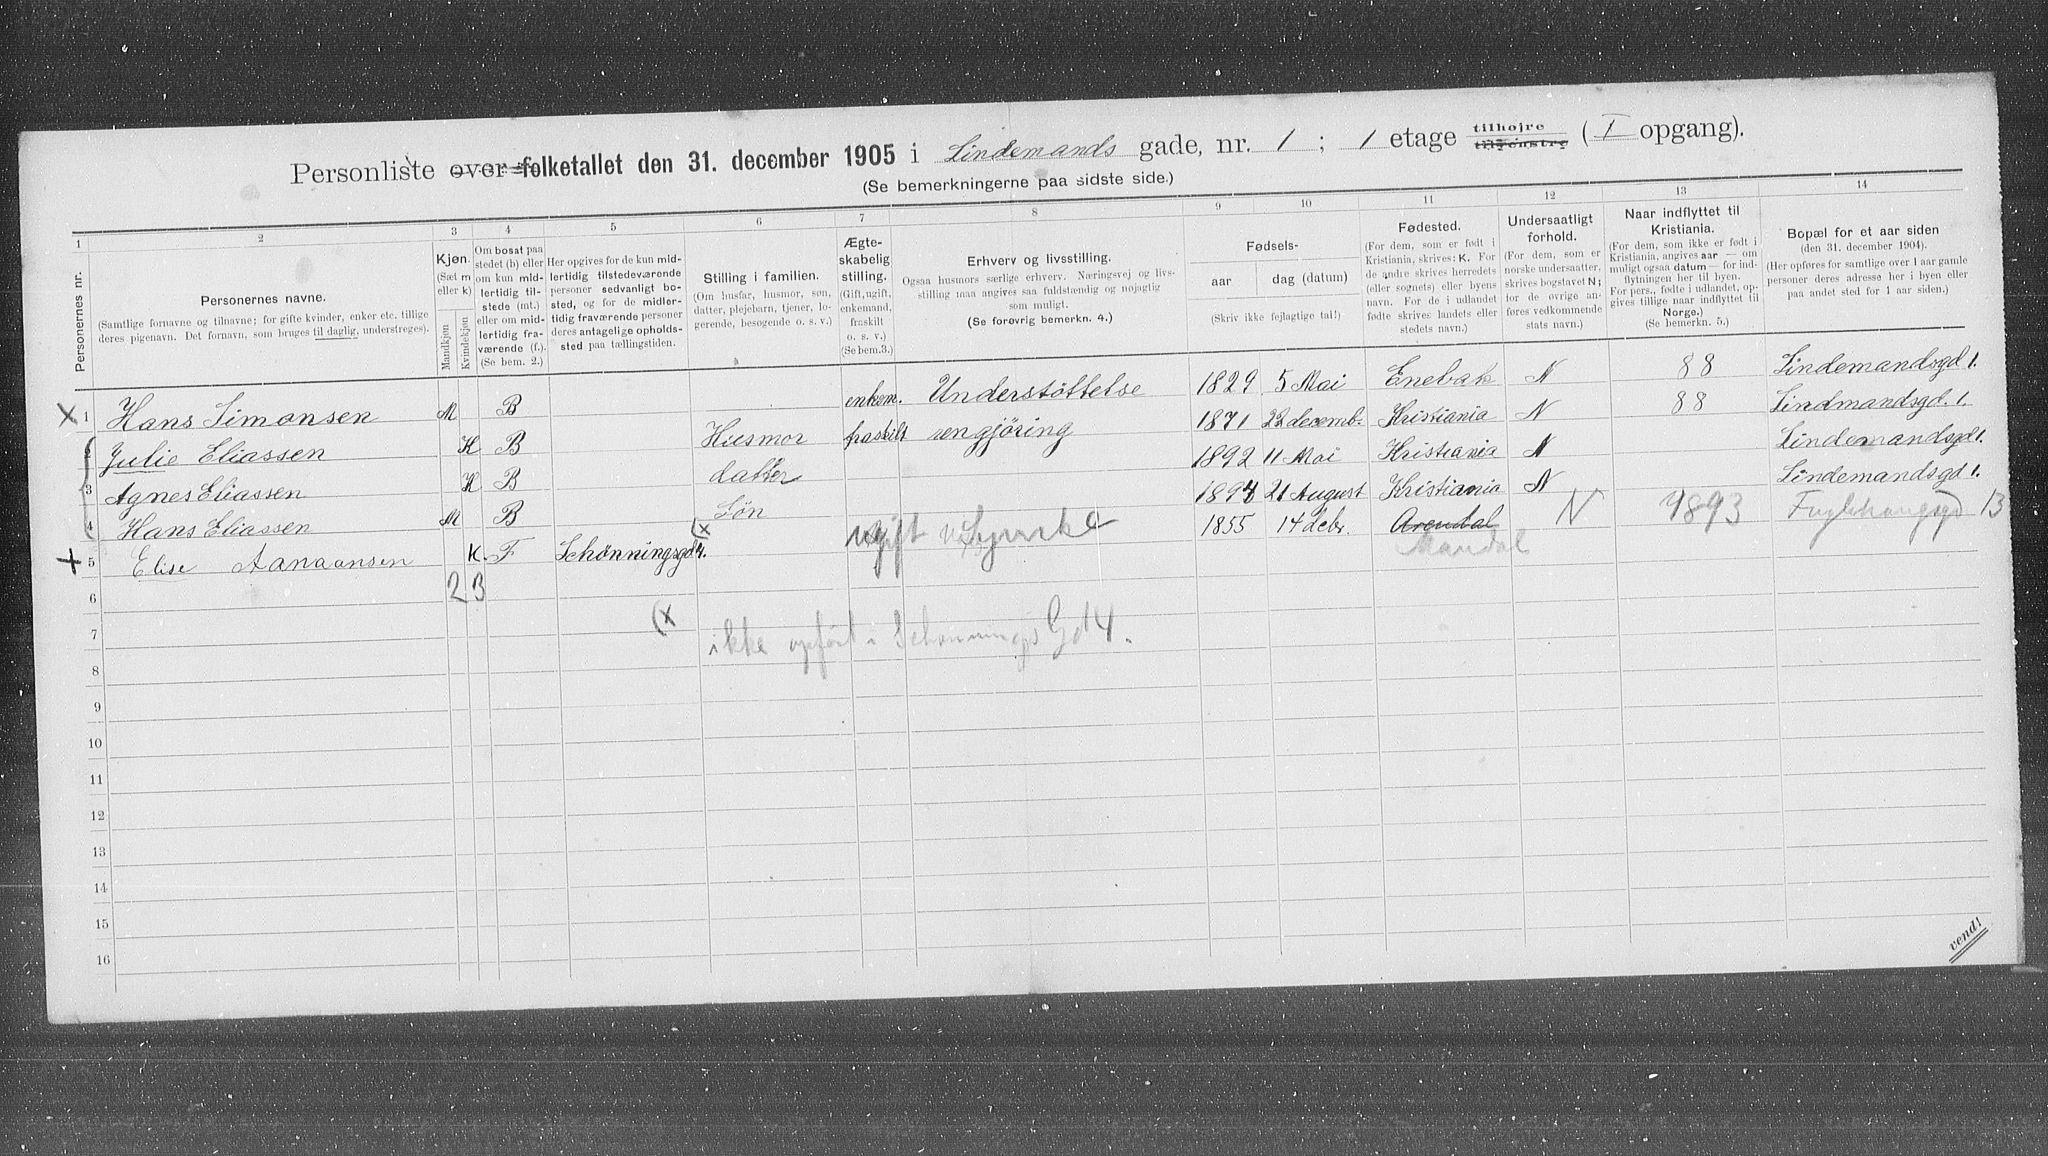 Personliste over folketallet den 31. december 1905 i Lindemands gade, nr. 1 ; 1 etage tilhøjre tilvenstre ( I opgang).
(Se bemerkningerne paa sidste side.)
1 2 3 4 5 6 7 8 9 10 11 12 13 14
Personernes nr.
Personernes navne.
(Samtlige fornavne og tilnavne; for gifte kvinder, enker etc. tillige
deres pigenavn. Det fornavn, som bruges til daglig, understreges).
Kjøn.
(Sæt m
eller k)
Mandkjøn
Kvindekjøn
Om bosat paa
stedet (b) eller
om kun mid-
lertidig til-
stede (mt.)
eller om mid-
lertidig fra-
værende (f.).
(Se bem. 2.)
Her opgives for de kun mid-
lertidig tilstedeværende
personer sedvanligt bo-
sted, og for de midler-
tidig fraværende personer
deres antagelige opholds-
sted paa tællingstiden.
Stilling i familien.
(Om husfar, husmor, søn,
datter, plejebarn, tjener, lo-
gerende, besøgende o. s. v.)
Ægte-
skabelig
stilling.
(Gift, ugift,
enkemand,
fraskilt
o. s. v.)
(Se bem. 3.)
Erhverv og livsstilling.
Ogsaa husmors særlige erhverv. Næringsvej og livs-
stilling maa angives saa fuldstændig og nøjagtig
som muligt.
(Se forøvrig bemerkn. 4.)
Fødsels-
aar
dag (datum)
(Skriv ikke fejlagtige tal!)
Fødested.
(For dem, som er født i
Kristiania, skrives: K. For
de andre skrives herredets
(eller sognets) eller byens
navn. For de i udlandet
fødte skrives landets eller
stedets navn.)
Undersaatligt
forhold.
(For dem, som er
norske undersaatter,
skrives bogstavet N;
for de øvrige an-
føres vedkommende
stats navn.)
Naar indflyttet til
Kristiania.
(For dem, som ikke er født i
Kristiania, angives aar — om
muligt ogsaa datum — for ind-
flytningen her til byen.
For pers., fødte i udlandet, op-
gives tillige naar indflyttet til
Norge.)
(Se bemerkn. 5.)
Bopæl for et aar siden
(den 31. december 1904).
(Her opføres for samtlige over 1 aar gamle
personer deres adresse her i byen eller
paa andet sted for 1 aar siden.)
X 1 Hans Simonsen M B enkem. Understøttelse 1829 5 Mai Enebak N 88 Lindemandsgd 1.
2 Julie Eliassen K B Husmor fraskilt rengjøring 1871 22 decemb. Kristiania N 88 Lindmandsgd. 1.
3 Agnes Eliassen K B datter 1892 11 Mai Kristiania N Lindemandsgd 1.
4 Hans Eliassen M B Søn 1894 21 August Kristiania N Lindemandsgd 1.
X 5 Elise K. F Schønningsgd 4. (x gift 1855 14 debr. Arendal Mandal N 1893 13
6 2 3
7 (x ikke opført i Schønnings Gd 4.
8
9
10
11
12
13
14
15
16
vend!